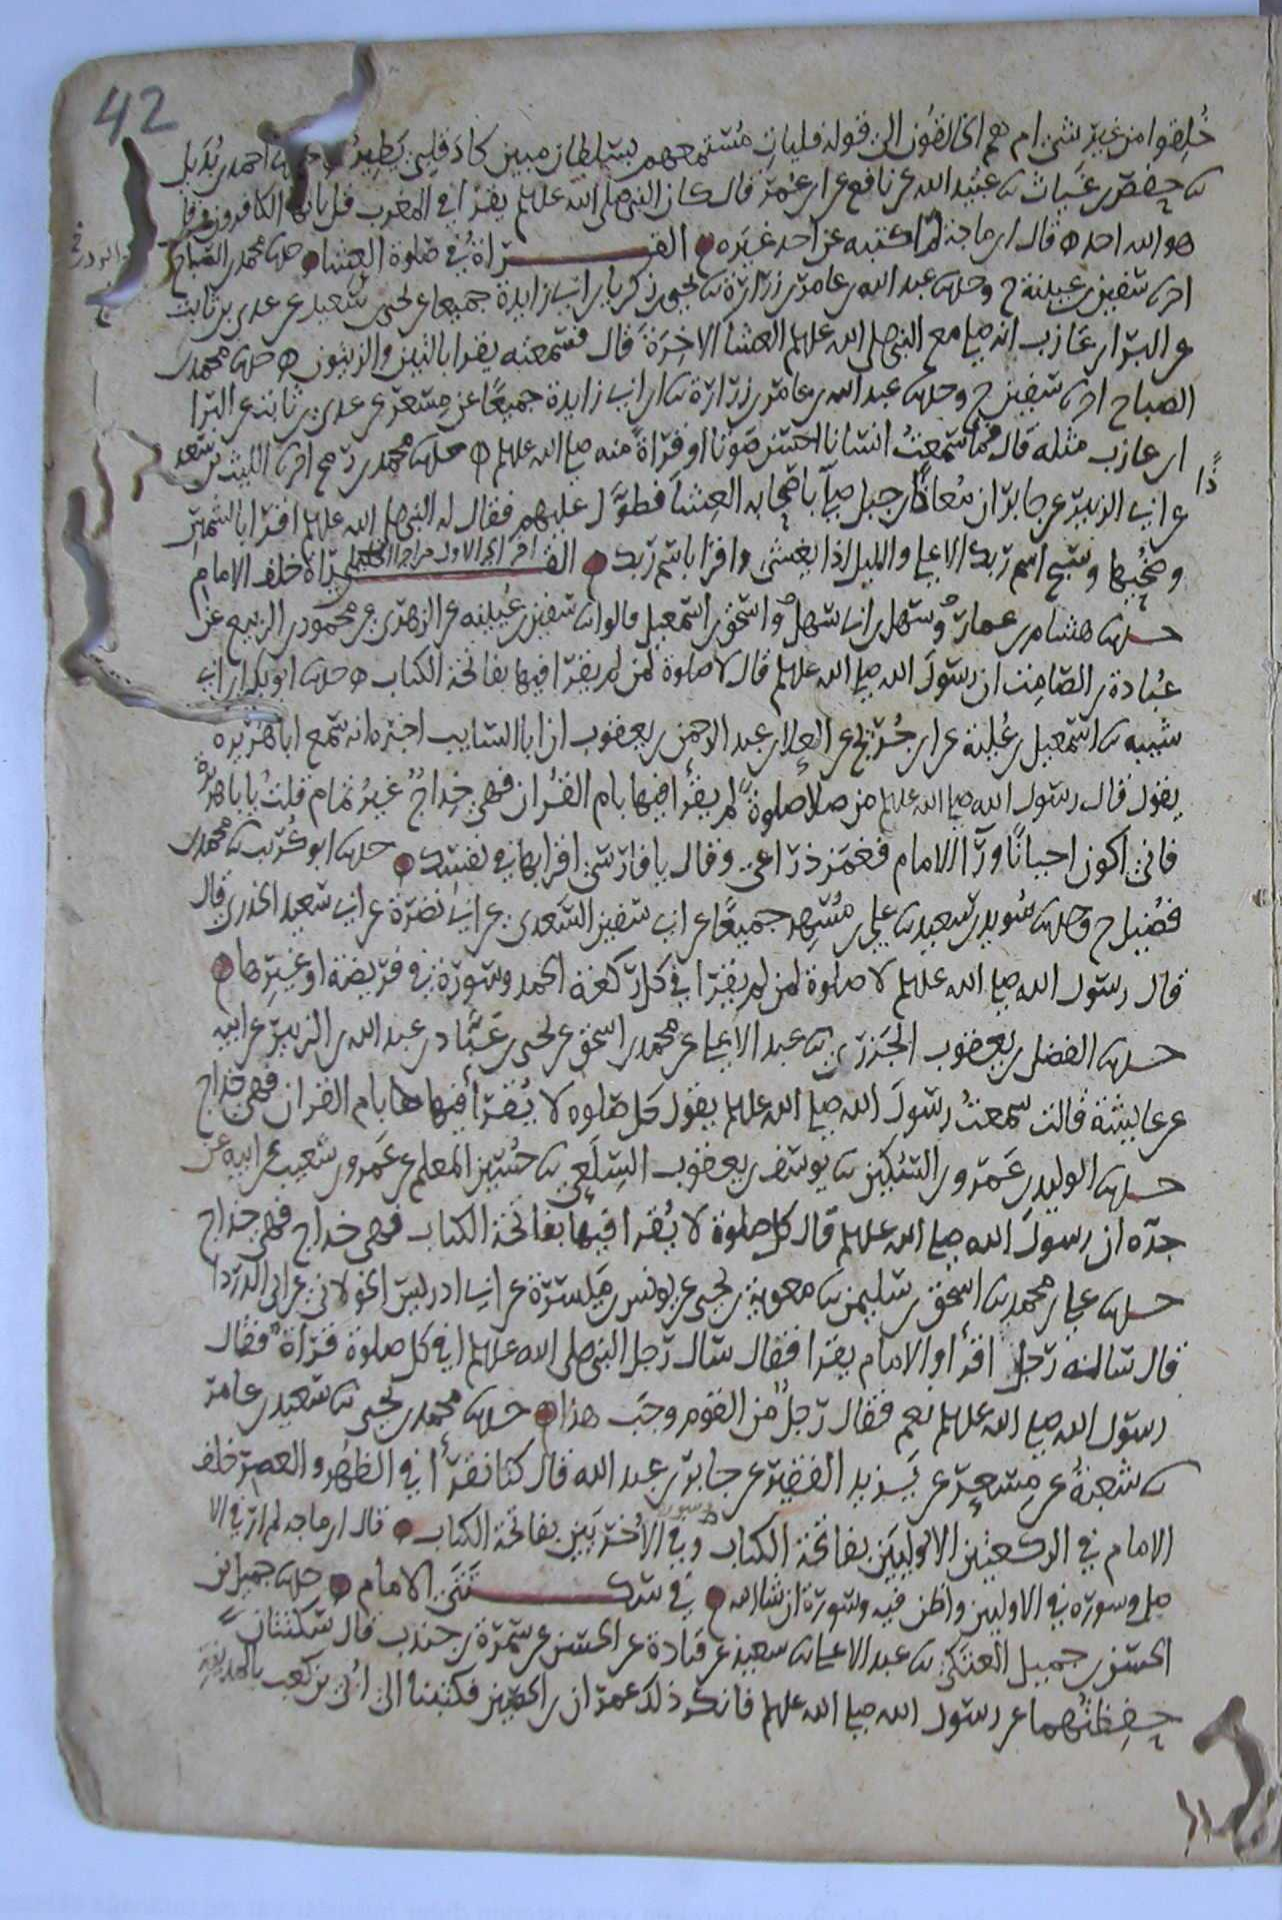 42
خُلِقوا من غير شي ام هم الخالقون الى قوله فليات مُستمعهم بسلطان مبين كاد قلبي يَطِير احمد بن بُدَيل
ثنا حفص بن غياث ثنا عبيد الله عن نافع عن ابن عُمَر قال كان النبي صلى الله عليه وسلم يقرا في المغرب قل يا ايها الكافرون وقل
هو الله احد قال ابن ماجة لم اكتبه عن احد غيره القراةُ في صلوة العِشا حدثنا محمد بن الصباح
انا سفين بن عيينة ح وحدثنا عبد الله بن عامر بن زرارة ثنا يحيى بن زكريا بن ابي زايدة جميعا عن يحيى بن سعيد عن عدي بن ثابت
عن البراء بن عازب انه صلى مع النبي صلى الله عليه وسلم العشا الاخِرَة قال فسمعته يقرا بالتين والزيتون حدثنا محمد بن
الصباح انا سفين ح وحدثنا عبد الله بن عامر بن زرارة ثنا ابن ابي زايدة جميعًا عن مِسعر عن عدي بن ثابت عن البرا
ابن عازب مثله قال فما سمعتُ انسانا احسن صوتا او قراةً منه صلى الله عليه وسلم حدثنا محمد بن رمح انا الليث بن سعد
عن ابي الزبير عن جابر ان مُعاذ بن جبل صلى باصحابه العِشا فطوَّل عليهم فقال له النبي صلى الله عليه وسلم اقرا بالشمس
وضحيها وسبح اسم ربك الاعلى والليل اذا يغشى واقرا باسم ربك القراة خلف الامام
حدثنا هشام بن عمار وسهل بن ابي سهل واسحق بن اسمعيل قالوا ثنا سفين بن عُيينه عن الزهري عن محمود بن الربيع عن
عُبادة بن الصامِت ان رسولَ الله صلى الله عليه وسلم قال لا صلوة لمن لم يقرا فيها بفاتحة الكتاب حدثنا ابو بكر بن ابي
شيبه ثنا اسمعيل بن عُليّة عن ابن جُريج عن العلا بن عبد الرحمن بن يعقوب ان ابا السايب اخبره انه سمع ابا هريره
يقول قال رسول الله صلى الله عليه وسلم من صلا صلوةً لم يقرأ فيها بام القُران فهي خِداجٌ غيرُ تمام قلتُ يابا هريرة
فاني اكون احيانًا ورآ الامام فغمز ذراعي وقال يا فارسي اقرا بها في نفسِك حدثنا ابو كُريب ثنا محمد بن
فضيل ح وحدثنا سُويد بن سعيد ثنا علي بن مُسهِر جميعًا عن ابي سفين السَعدي عن ابي نضرة عن ابي سعيد الخدري قال
قال رسول الله صلى الله عليه وسلم لا صلوة لمن لم يقرا في كل ركعة الحمد وسورة في فريضة او غيرها
حدثنا الفضل بن يعقوب الجَزري ثنا عبد الاعلى عن محمد بن اسحق عن يحيى بن عَبَّاد بن عبد الله بن الزبير عن ابيه
عن عايشة قالت سمعتُ رسولَ الله صلى الله عليه وسلم يقول كل صلوه لا يُقرأ فيها بام القران فهي خداج
حدثنا الوليد بن عَمرو بن السُكين ثنا يوسف بن يعقوب السِلَعي ثنا حُسَين المعلم عن عَمرو بن شعيب عن ابيه عن
جدّه ان رسولَ الله صلى الله عليه وسلم قال كل صلوة لا يُقرا فيها بفاتحة الكتاب فهي خداج فهي خداج
حدثنا علي بن محمد ثنا اسحق بن سليمن ثنا معوية بن يحيى عن يونس بن مَيسَرَة عن ابي ادريس الخولاني عن ابي الدردا
قال ساله رَجُلٌ اقرأ والامام يقرا فقال سال رَجل النبي صلى الله عليه وسلم افي كل صلوة قراةٌ فقال
رسول الله صلى الله عليه وسلم نعم فقال رَجلٌ من القوم وجَب هذا حدثنا محمد بن يحيى ثنا سعيد بن عامر
ثنا شعبة عن مِسعر عن يَزيد الفقير عن جابر بن عبد الله قال كنا نقرأ في الظهر والعصر خلف
الامام في الركعتين الاوليَين بفاتحة الكتاب وسورة وفي الأُخرَيَين بفاتحة الكتاب قال ابن ماجه لم ار في الا
صل وسوره في الاوليين واظن فيه وسورة ان شا الله في سكتتي الامام حدثنا جميل بن
الحسن بن جميل العتكي ثنا عبد الاعلى ثنا سعيد عن قتادة عن الحسن عن سَمُرَة بن جندب قال سَكتتان
حفِظتُهما عن رسول الله صلى الله عليه وسلم فانكر ذلك عمران بن الحصين فكتبنا الى اُبي بن كعب بالمدينة